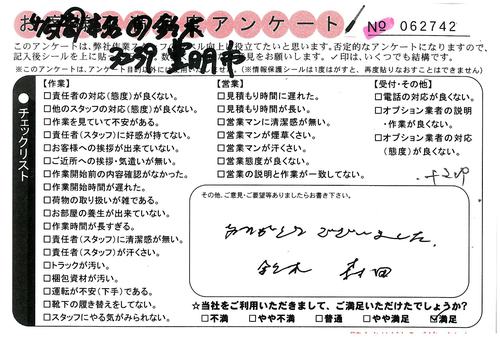 お アンケート
No 062742
このアンケートは、弊社作業 向上に役立てたいと思います。否定的なアンケートになりますので、
記入後シールを上に貼 数多 見をお願いします。✓印は、いくつでも結構です。
※このアンケートは、アンケート目的以外には使用いたしません。(※情報保護シールは1度はがすと、再度貼りなおすことはできません)
●チェックリスト
【作業】
□責任者の対応(態度)が良くない。
□他のスタッフの対応(態度)が良くない。
□作業を見ていて不安がある。
□責任者(スタッフ)に好感が持てない。
□お客様への挨拶が出来ていない。
□ご近所への挨拶・気遣いが無い。
□作業開始前の内容確認がなかった。
□作業開始時間が遅れた。
□荷物の取り扱いが雑である。
□お部屋の養生が出来ていない。
□作業時間が長すぎる。
□責任者(スタッフ)に清潔感が無い。
□責任者(スタッフ)が汗くさい。
□トラックが汚い。
□梱包資材が汚い。
□運転が不安(下手)である。
□靴下の履き替えをしてない。
□スタッフにやる気がみられない。
【営業】
□見積もり時間に遅れた。
□見積もり時間が長い。
□営業マンに清潔感が無い。
□営業マンが煙草くさい。
□営業マンが汗くさい。
□営業態度が良くない。
□営業の説明と作業が一致してない。
【受付・その他】
□電話の対応が良くない。
□オプション業者の説明
・作業が良くない。
□オプション業者の対応
(態度)が良くない。
その他、ご意見・ご要望等ありましたらお書き下さい。
ありがとうございました。
鈴木 森田
☆当社をご利用いただきまして、ご満足いただけたでしょうか?
□不満 □やや不満 □普通 □やや満足 ☑満足